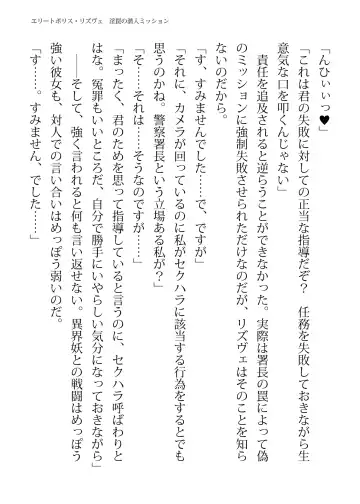 エリートポリス・リズヴェ　淫罠の潜入ミッション
「んひぃぃっ♥」
「これは君の失敗に対しての正当な指導だぞ？　任務を失敗しておきながら生
意気な口を叩くんじゃない」
責任を追及されると逆らうことができなかった。実際は署長の罠によって偽
のミッションに強制失敗させられただけなのだが、リズヴェはそのことを知ら
ないのだから。
「す、すみませんでした……で、ですが」
「それに、カメラが回っているのに私がセクハラに該当する行為をするとでも
思うのかね。警察署長という立場ある私が？」
「そ……それは……そうなのですが……」
「まったく、君のためを思って指導していると言うのに、セクハラ呼ばわりと
はな。冤罪もいいところだ、自分で勝手にいやらしい気分になっておきながら」
――そして、強く言われると何も言い返せない。異界妖との戦闘はめっぽう
強い彼女も、対人での言い合いはめっぽう弱いのだ。
「す……。すみません、でした……」